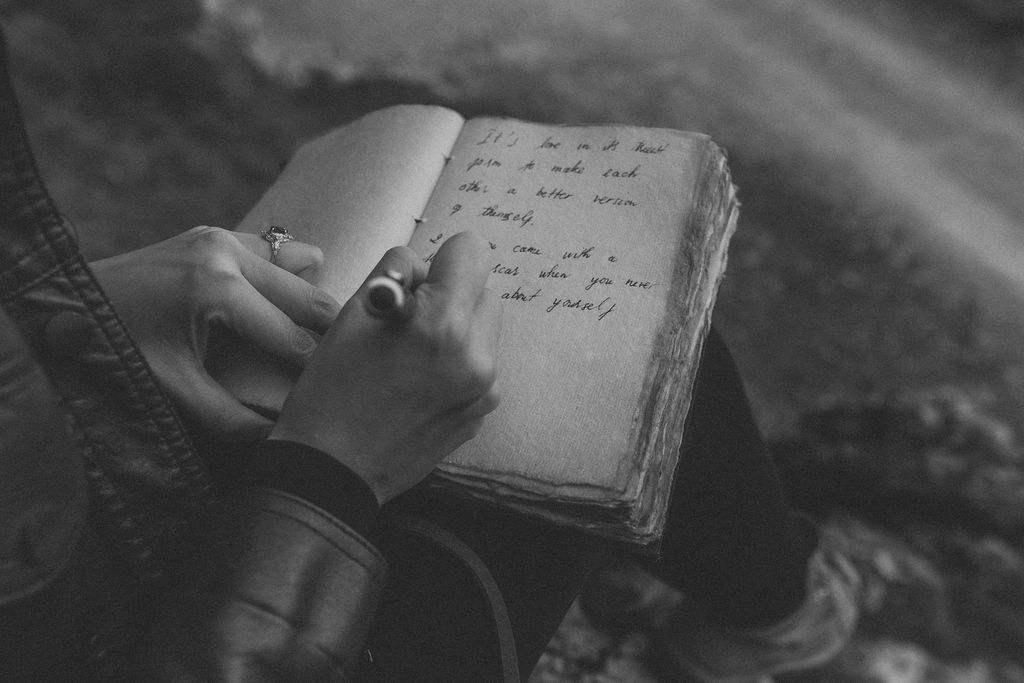 It's love in its truest
form to make each
other a better version
of themself.
came with a
scar when you never
about yourself